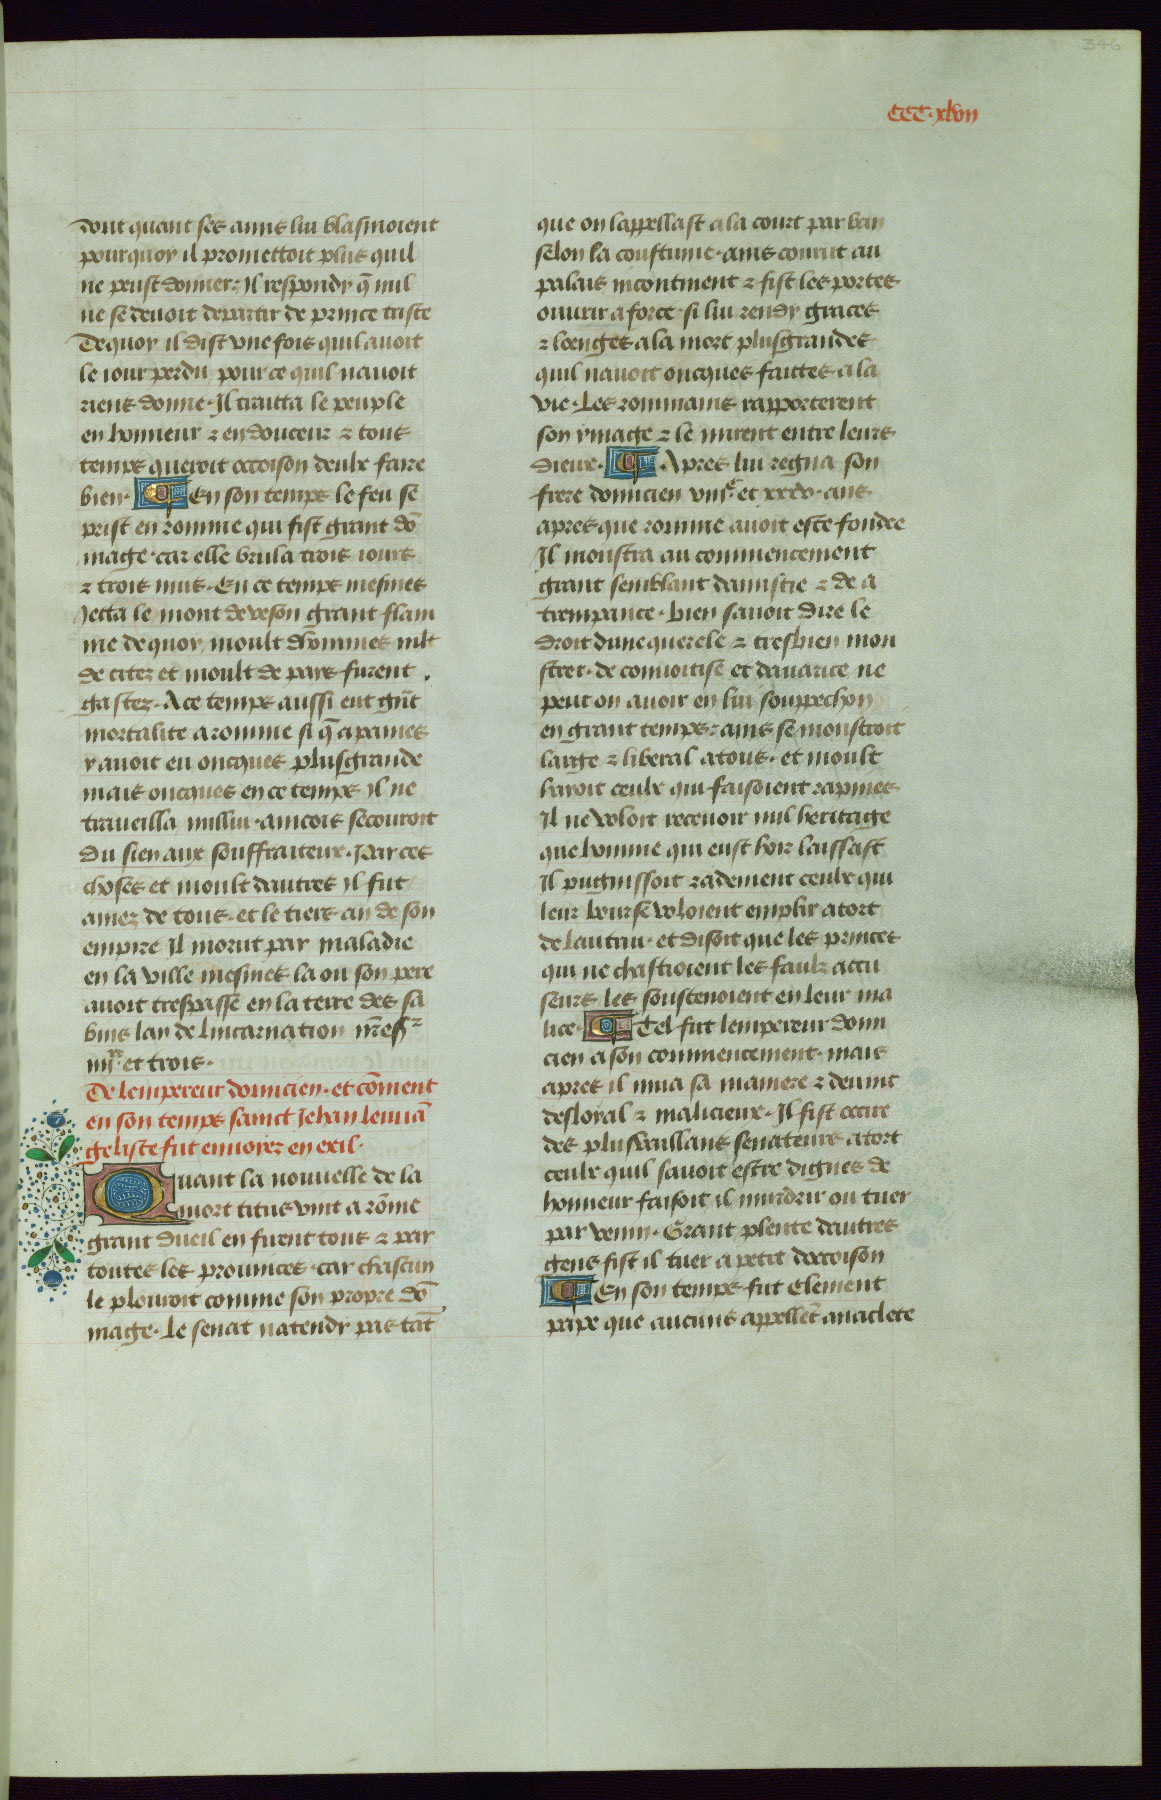 346
CCC.xlvii
dont quant ses amis lui blasmoient
pourquoy il promettoit plus quil
ne peust donner, Il respondy q̄ nul
ne se devoit departir de prince triste
De quoy il dist une fois quil avoit
le iour perdu pour ce quil navoit
riens donne. Il traitta le peuple
en honneur ⁊ en douceur ⁊ tous
temps queroit occoison deulx faire
bien. En son temps le feu se
prist en romme qui fist grant dō
mage. car elle brula trois iours
⁊ trois nuis. En ce temps mesmes
Jetta le mont de veson grant flam
me de quoy moult dhommes mlt
de citez et moult de pays furent
gastez. A ce temps aussi eut gr̄t
mortalite a romme si q̄ a paines
y avoit eu oncques plus grande
mais oncques en ce temps il ne
travailla nullui. aincois secouroit
du sien aux souffraiteux. Par ces
choses et moult dautres il fut
amez de tous. et le tiers an de son
empire Il morut par maladie
en la ville mesmes la ou son pere
avoit trespasse en la terre des sa
bins lan de lincarnation nr̄e sʳ
iiijˣˣ. et trois.
De lempereur domicien. et cōment
en son temps sainct Jehan levuā
geliste fut envoyez en exil.
Quant la nouvelle de la
mort titus vint a rōme
grant dueil en furent tous ⁊ par
toutes les provinces. car chascun
le plouroit comme son propre dō
mage. Le senat natendy pas tāt
que on lappellast a la court par ban
selon la coustume. ains courut au
palais incontinent ⁊ fist les portes
ouvrir a force. si lui rendy graces
⁊ loenges a la mort plus grandes
quil navoit oncques faittes a la
vie. Les rommains rapporterent
son ymage ⁊ le mirent entre leurs
dieux. Apres lui regna son
frere domicien viiiᶜ et xxxv. ans
apres que romme avoit este fondee
Il monstra au commencement
grant semblant damistie ⁊ de a
trempance. bien savoit dire le
droit dune querele ⁊ tresbien mon
strer. de convoitise et davarice ne
peut on avoir en lui souppechon
en grant temps. ains se monstroit
large ⁊ liberal a tous. et moult
hayoit ceulx qui faisoient rapines
Il ne voloit recevoir nul heritage
que homme qui eust hoir laissast
Il pugnissoit radement ceulx qui
leur bourse voloient emplir a tort
de lautrui. et disoit que les princes
qui ne chastioient les faulx accu
seurs les soustenoient en leur ma
lice. Tel fut lempereur domi
cien a son commencement. mais
apres il mua sa maniere ⁊ devint
desloyal ⁊ malicieux. Il fist occire
des plus vaillans senateurs a tort
ceulx quil savoit estre dignes de
honneur faisoit il murdrir ou tuer
par venin. Grant plente dautres
gens fist il tuer a petit doccoison
En son temps fut Clement
pape que aucuns appellēt anaclete